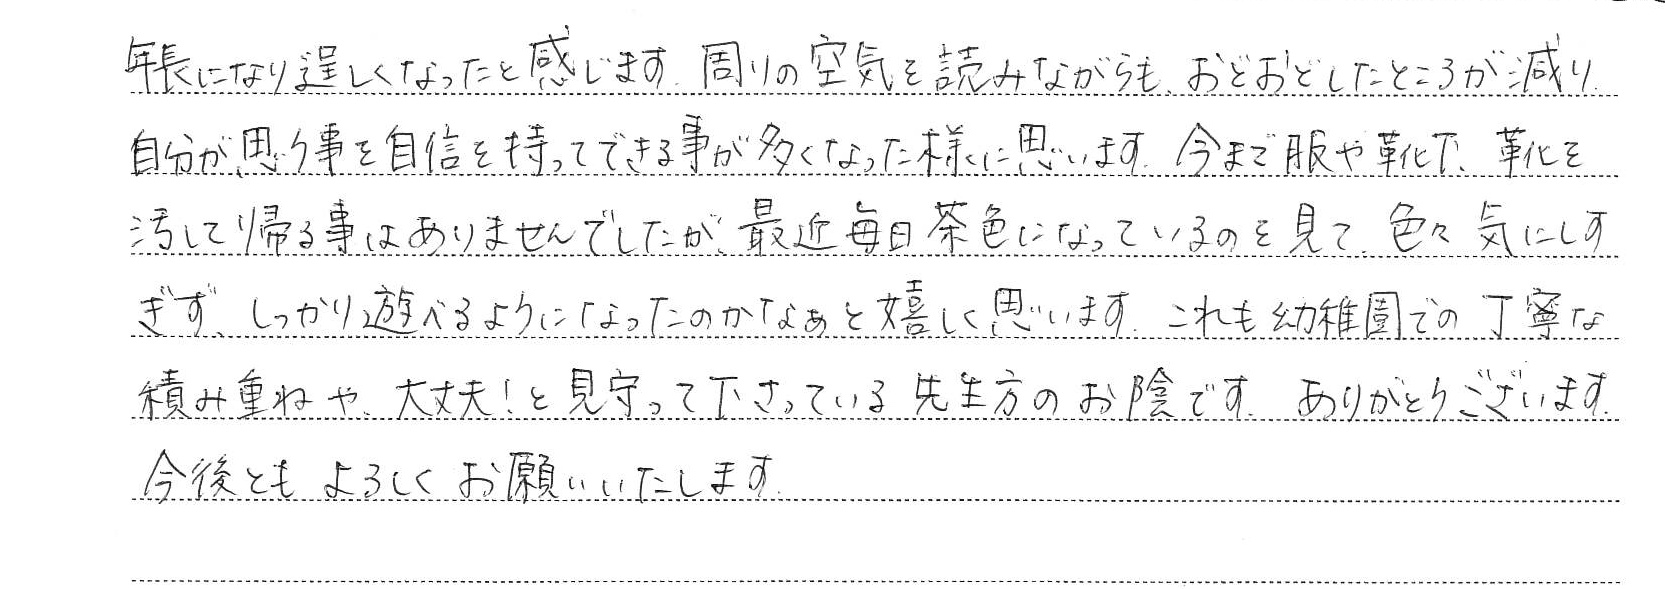 年長になり逞しくなったと感じます。周りの空気を読みながらも、おどおどしたところが減り、
自分が思う事を自信を持ってできる事が多くなった様に思います。今まで服や靴下、靴を
汚して帰る事はありませんでしたが、最近毎日茶色になっているのを見て、色々気にしす
ぎず、しっかり遊べるようになったのかなぁと嬉しく思います。これも幼稚園での丁寧な
積み重ねや、大丈夫！と見守って下さっている先生方のお陰です。ありがとうございます。
今後ともよろしくお願いいたします。